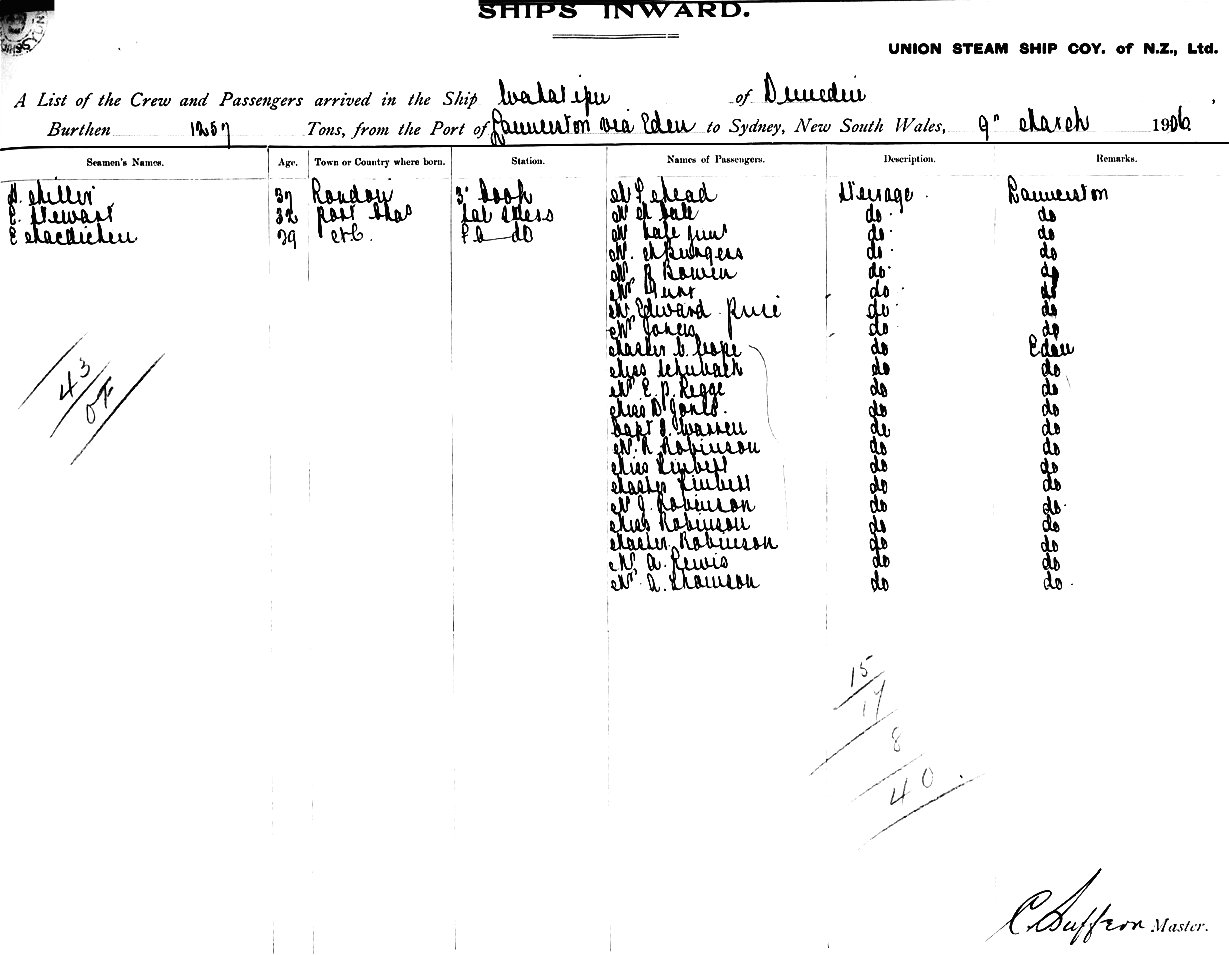 SHIPS INWARD.
UNION STEAM SHIP COY. of N.Z., Ltd.
A List of the Crew and Passengers arrived in the Ship Wakatipu of Dunedin
Burthen 1257 Tons, from the Port of Launceston via Eden to Sydney, New South Wales, 9" March 1906
Seamen's Names. Age. Town or Country where born. Station. Names of Passengers. Description. Remarks.
H. Miller 37 London 3' Cook Mr P Mead Steerage Launceston
E. Stewart 32 Port Chas Sal Mess Mr H Tate do do
E 29 do Mr Tate Junr do do
Mr. M Burgess do do
Mr R Bowen do do
Mr Hunt do do
Mr Edward Price do do
Mr Jones do do
Master C. Cope do Eden
Miss Schubach do do
Mr E. P. Legge do do
Miss D Jones. do do
Capt J. Warren do do
Mr. R Robinson do do
Miss Kimbell do do
Master Kimbell do do
Mr J. Robinson do do
Miss Robinson do do
Master Robinson do do
Mr A. Lewis do do
Mr A. Thomson do do
43
15
17
8
40
C. Suffern Master.